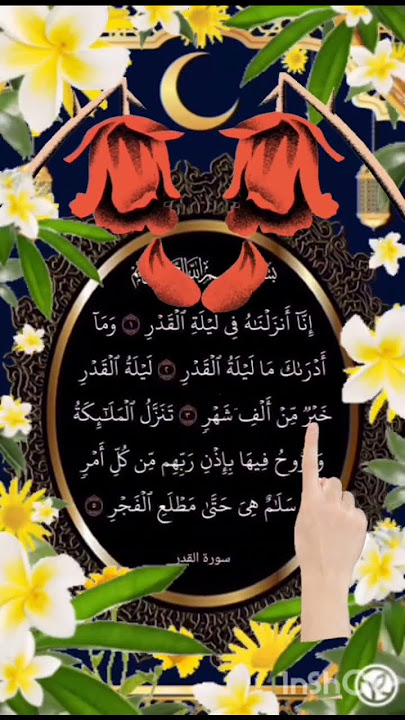 إِنَّآ أَنزَلْنَٰهُ فِى لَيْلَةِ ٱلْقَدْرِ ١ وَمَآ
أَدْرَىٰكَ مَا لَيْلَةُ ٱلْقَدْرِ ٢ لَيْلَةُ ٱلْقَدْرِ
خَيْرٌ مِّنْ أَلْفِ شَهْرٍ ٣ تَنَزَّلُ ٱلْمَلَٰٓئِكَةُ
فِيهَا بِإِذْنِ رَبِّهِم مِّن كُلِّ أَمْرٍ
سَلَٰمٌ هِىَ حَتَّىٰ مَطْلَعِ ٱلْفَجْرِ ٥
سورة القدر